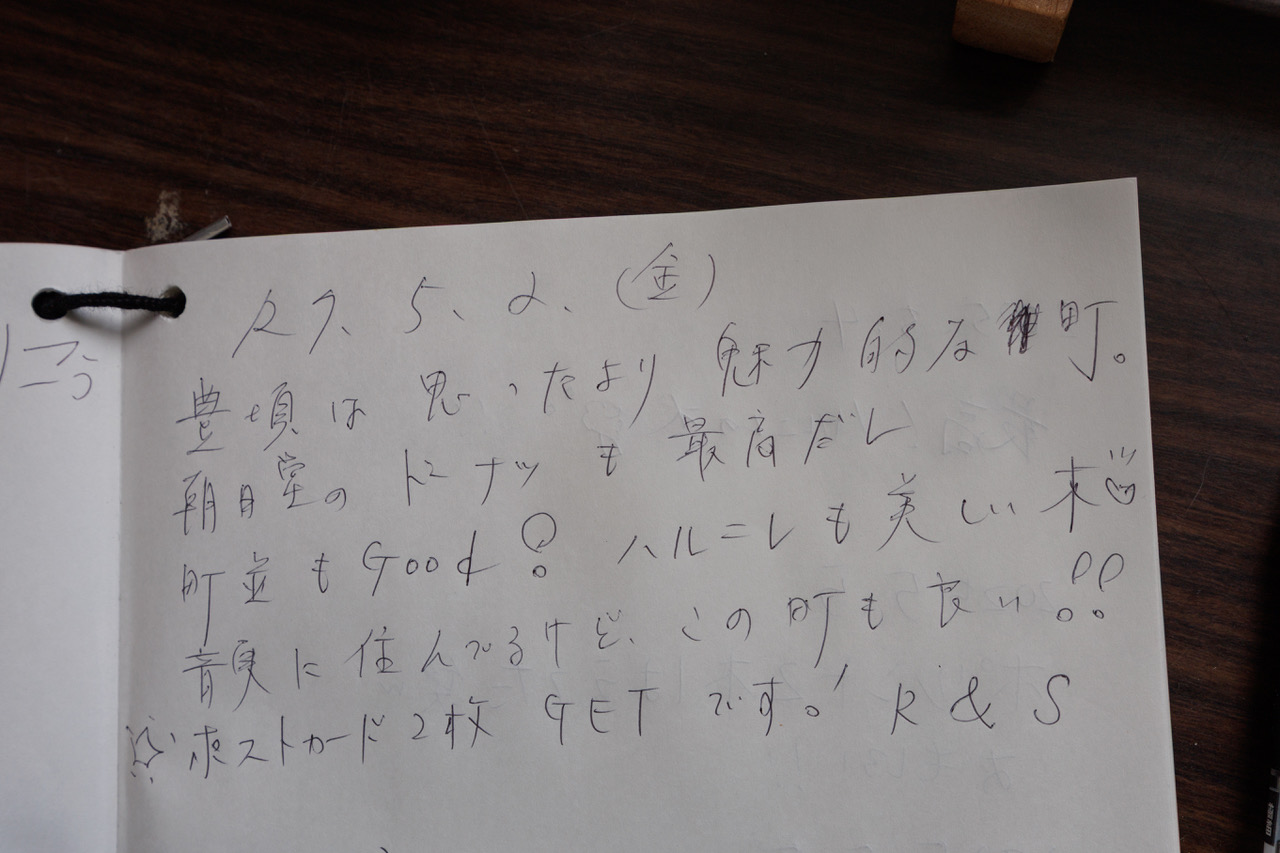 R7、5、2、(金)
豊頃は思ったより魅力的な町。
朝日堂のドーナツも最高だし
町並もGood! ハルニレも美しい木
音更に住んでるけど、この町も良い!!
ポストカード2枚GETです! R & S